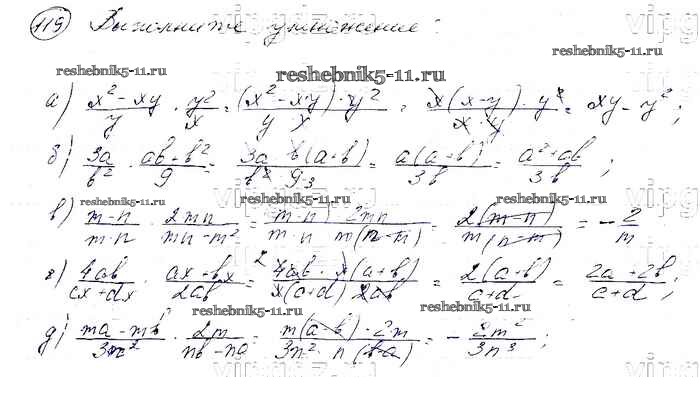 119 Выполните умножение:
reshebnik5-11.ru
reshebnik5-11.ru
а) (x² - xy)/y · y²/x = ((x² - xy) · y²)/(y · x) = (x(x - y) · y²)/(x · y) = xy - y²;
б) 3a/b² · (ab + b²)/9 = (3a · b(a + b))/(b² · 9₃) = a(a + b)/3b = (a² + ab)/3b;
reshebnik5-11.ru
reshebnik5-11.ru
в) (m - n)/(m · n) · 2mn/(mn - m²) = (m - n · 2mn)/(m · n · m(n - n)) = 2(m - n)/m(n - m) = -2/m
г) 4ab/(cx + dx) · (ax + bx)/2ab = (4ab · x(a + b))/(x(c + d) 2ab) = 2(a + b)/(c + d) = (2a + 2b)/(c + d);
reshebnik5-11.ru
reshebnik5-11.ru
д) (ma - mb)/3n² · 2m/(nb - na) = (m(a - b) · 2m)/(3n² · n(b - a)) = -2m²/3n³;